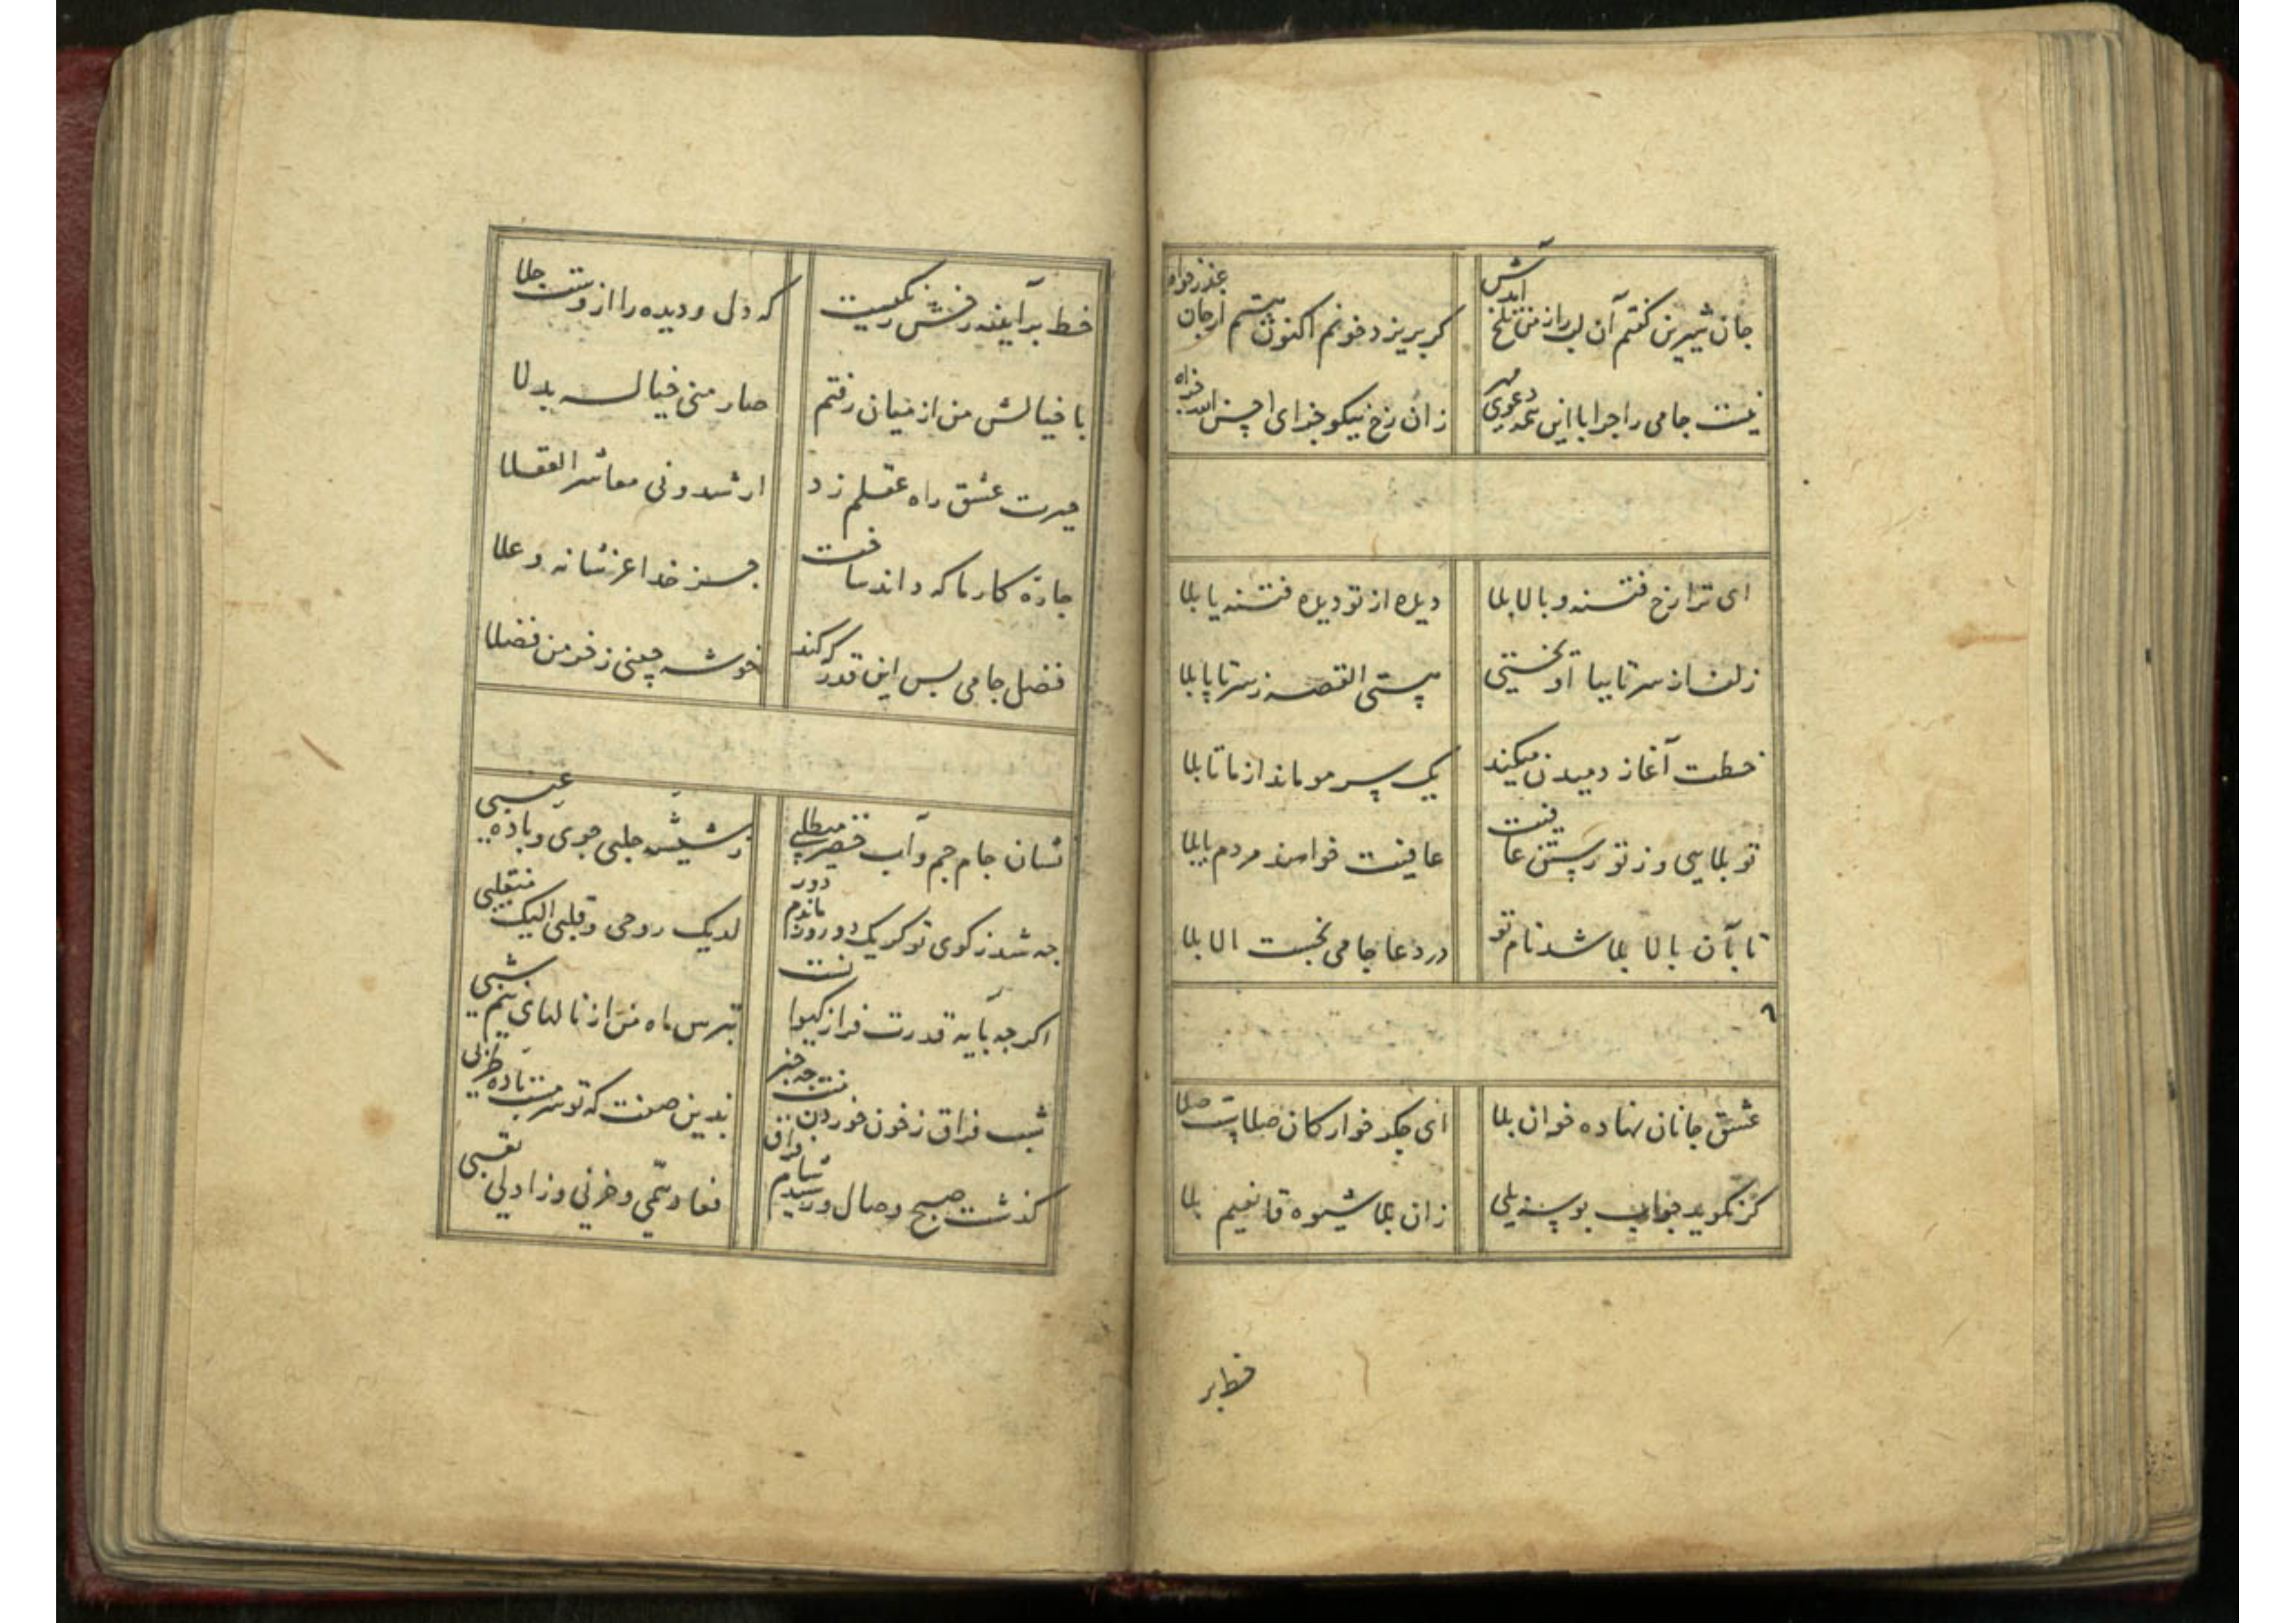 جان شیرین گفتم آن لب را زمن تلخ آیدش
گر بریزد خونم اکنون هستم از جان عذرخواه
نیست جامی را جز با این همه دعوی مهر
زان رخ نیکو جزای احسن الله جزاه
ای ترا رخ فتنه و بالا بلا
دیده از تو دیده فتنه یا بلا
زلف از سر تا بپا آویختی
هستی القصه ز سر تا پا بلا
خطت آغاز دمیدن میکند
یک سر مو ماند از ما تا بلا
تو بلایی وز تو رستن عافیت
عافیت خواهند مردم یا بلا
تا بآن بالا بلا شد نام تو
در دعا جامی نجست الا بلا
۶
عشق جانان نهاده خوان بلا
ای جگر خوارکان صلاست صلا
گر نگوید جواب بوسه بلی
زان بلا شیوه قانعیم بلا
خط بر
خط بر آینه رخش زنگیست
که دل و دیده را ازوست جلا
با خیالش من از میان رفتم
صار منی خیاله بدلا
حیرت عشق راه عقلم زد
ارشدونی معاشر العقلا
چارهٔ کار ما که داند ساخت
جز خدا عز شانه و علا
فضل جامی بس این قدر که کند
خوشه چینی ز خرمن فضلا
نشان جام جم و آب خضر میطلبی
ز شیشه حلبی جوی و باده عنبی
چه شد ز کوی تو گر یک دو روز ماندم دور
لدیک روحی و قلبی الیک منقلبی
اگر چه پایه قدرت فراز کیوانست
بترس ماه من از نالهای نیم شبی
شب فراق ز خون خوردن منت چه خبر
بدین صفت که تو سرمست باده طربی
گذشت صبح وصال و رسید شام فراق
فعاد همی و حزنی و زاد لی تعبی